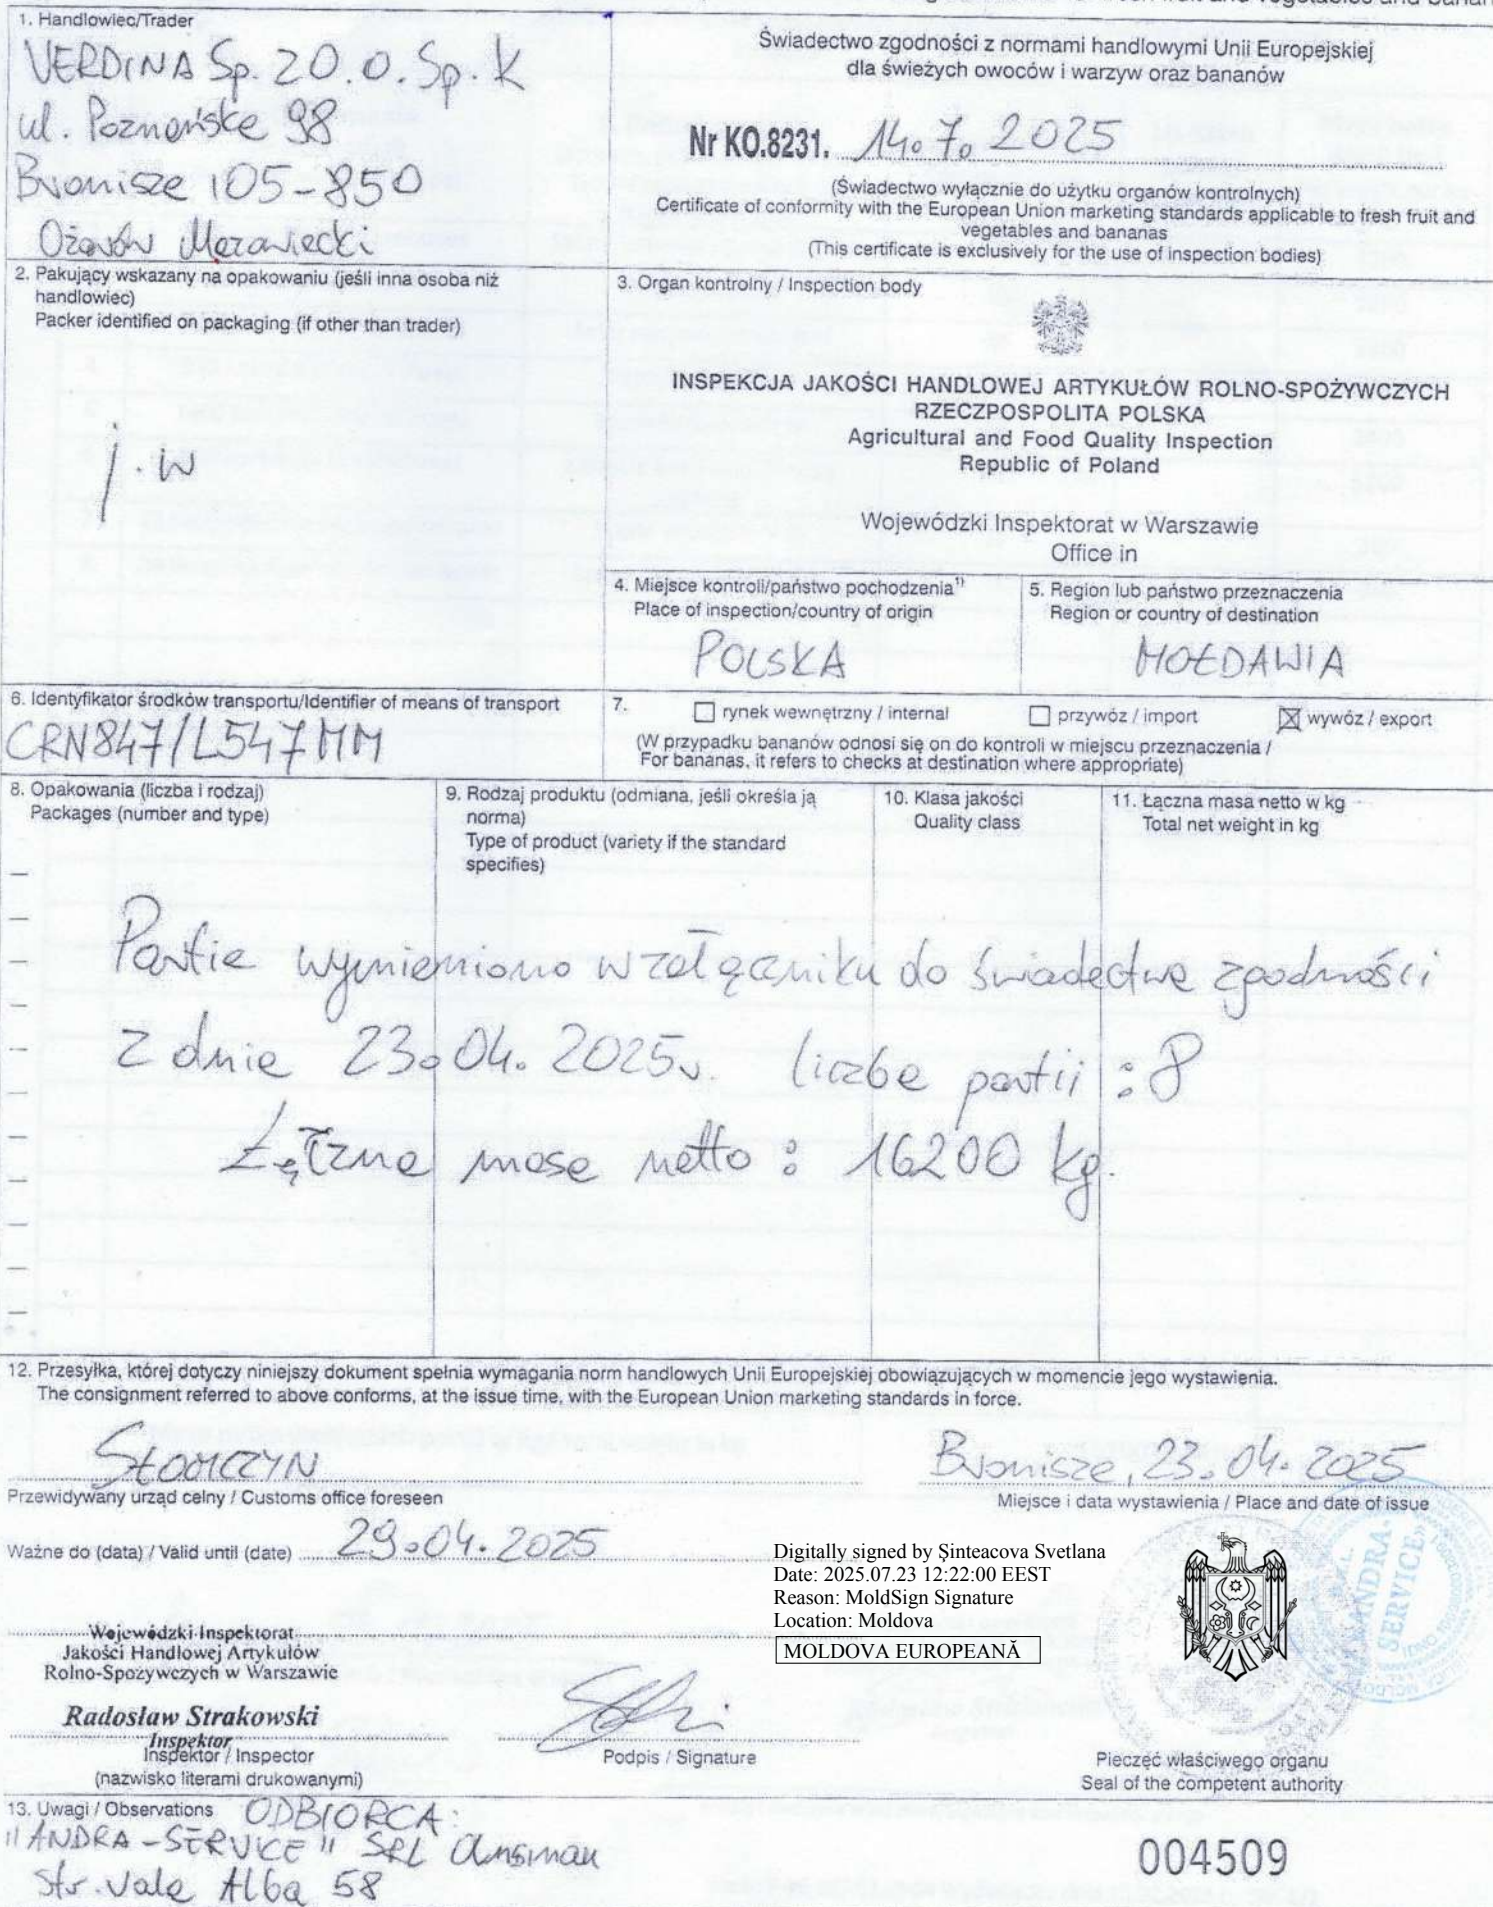 1. Handlowiec/Trader
VERDINA Sp. ZO.O. Sp. K
ul. Poznańska 98
Bronisze 105-850
Ożarów Mazowiecki
Świadectwo zgodności z normami handlowymi Unii Europejskiej
dla świeżych owoców i warzyw oraz bananów
Nr KO.8231. 14.7.2025
(Świadectwo wyłącznie do użytku organów kontrolnych)
Certificate of conformity with the European Union marketing standards applicable to fresh fruit and
vegetables and bananas
(This certificate is exclusively for the use of inspection bodies)
2. Pakujący wskazany na opakowaniu (jeśli inna osoba niż
handlowiec)
Packer identified on packaging (if other than trader)
j.w
3. Organ kontrolny / Inspection body
INSPEKCJA JAKOŚCI HANDLOWEJ ARTYKUŁÓW ROLNO-SPOŻYWCZYCH
RZECZPOSPOLITA POLSKA
Agricultural and Food Quality Inspection
Republic of Poland
Wojewódzki Inspektorat w Warszawie
Office in
4. Miejsce kontroli/państwo pochodzenia¹⁾
Place of inspection/country of origin
POLSKA
5. Region lub państwo przeznaczenia
Region or country of destination
MOŁDAWIA
6. Identyfikator środków transportu/Identifier of means of transport
CRN847/L547MM
7. rynek wewnętrzny / internal przywóz / import wywóz / export
(W przypadku bananów odnosi się on do kontroli w miejscu przeznaczenia /
For bananas, it refers to checks at destination where appropriate)
8. Opakowania (liczba i rodzaj)
Packages (number and type)
9. Rodzaj produktu (odmiana, jeśli określa ją
norma)
Type of product (variety if the standard
specifies)
10. Klasa jakości
Quality class
11. Łączna masa netto w kg
Total net weight in kg
Partie wymieniono w załączniku do świadectwa zgodności
z dnia 23.04.2025r. liczba partii : 8
Łączna masa netto : 16200 kg.
12. Przesyłka, której dotyczy niniejszy dokument spełnia wymagania norm handlowych Unii Europejskiej obowiązujących w momencie jego wystawienia.
The consignment referred to above conforms, at the issue time, with the European Union marketing standards in force.
SŁOMCZYN
Przewidywany urząd celny / Customs office foreseen
Bronisze, 23.04.2025
Miejsce i data wystawienia / Place and date of issue
Ważne do (data) / Valid until (date) 29.04.2025
Digitally signed by Şinteacova Svetlana
Date: 2025.07.23 12:22:00 EEST
Reason: MoldSign Signature
Location: Moldova
MOLDOVA EUROPEANĂ
Wojewódzki Inspektorat
Jakości Handlowej Artykułów
Rolno-Spożywczych w Warszawie
Radosław Strakowski
Inspektor
Inspektor / Inspector
(nazwisko literami drukowanymi)
Podpis / Signature
Pieczęć właściwego organu
Seal of the competent authority
13. Uwagi / Observations ODBIORCA:
"ANDRA-SERVICE" SRL
str. Vale Alba 58
004509